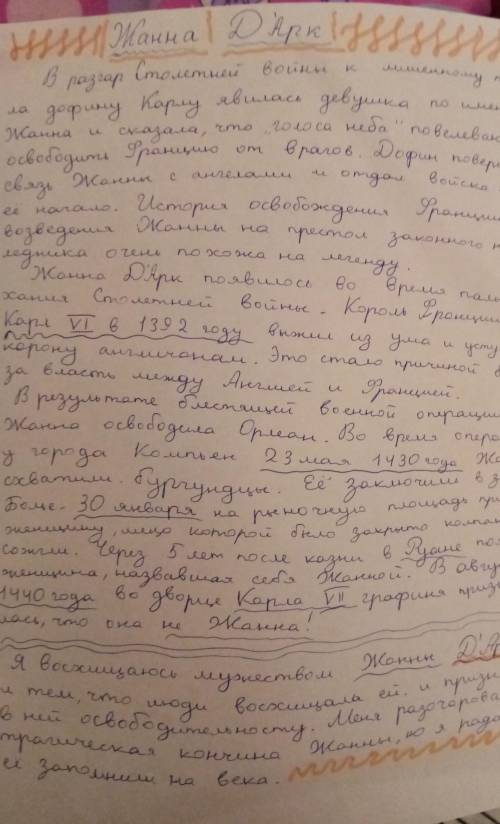 Жанна Д'Арк
В разгар Столетней войны к лишенному п
ла дофину Карлу явилась девушка по име
Жанна и сказала, что "голоса неба" повелеваю
освободить Францию от врагов. Дофин повер
связь Жанны с ангелами и отдал войска
её начало. История освобождения Франции
возведения Жанны на престол законного н
ледника очень похожа на легенду.
Жанна Д'Арк появилось во время
хания Столетней войны. Король Франции
Карл VI в 1392 году выжил из ума и усту
корону англичанам. Это стало причиной б
за власть между Англией и Францией.
В результате блестящей военной операции
Жанна освободила Орлеан. Во время опера
у города Компьен 23 мая 1430 года Жа
схватили бургундцы. Её заключили в з
Боме. 30 января на рыночную площадь при
женщину, лицо которой было закрыто
сожгли. Через 5 лет после казни в Руане по
женщина, назвавшая себя Жанной. В авгу
1440 года во дворце Карла VII графиня призн
лась, что она не Жанна!
Я восхищаюсь мужеством Жанны Д'Ар
и тем, что люди восхищала ей. и призн
в ней освободительносту. Меня разочарова
трагическая кончина Жанны, но я рада
её запомнили на века.